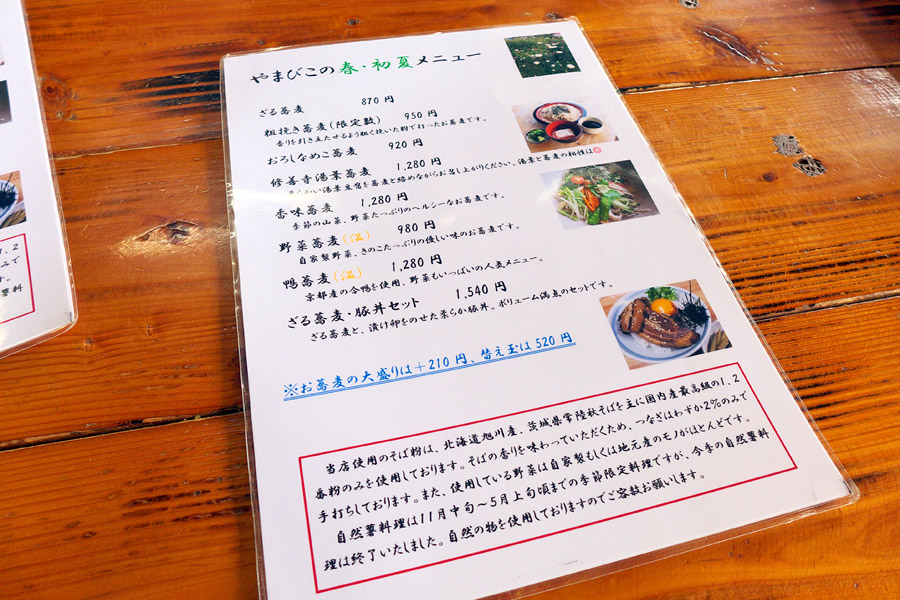 やまびこの春・初夏メニュー
ざる蕎麦 870円
粗挽き蕎麦(限定数) 950円
香りを引き立たせるよう粗く挽いた粉で打ったお蕎麦です。
おろしなめこ蕎麦 920円
修善寺湯葉蕎麦 1,280円
湯葉豆腐を蕎麦と絡めながらお召し上がりください。湯葉と蕎麦の相性は◎
香味蕎麦 1,280円
季節の山菜、野菜たっぷりのヘルシーなお蕎麦です。
野菜蕎麦(温) 980円
自家製野菜、きのこたっぷりの優しい味のお蕎麦です。
鴨蕎麦(温) 1,280円
京都産の合鴨を使用、野菜もいっぱいの人気メニュー。
ざる蕎麦・豚丼セット 1,540円
ざる蕎麦と、漬け卵をのせた柔らか豚丼。ボリューム満点のセットです。
※お蕎麦の大盛りは+210円、替え玉は520円
当店使用のそば粉は、北海道旭川産、茨城県常陸秋そばを主に国内産最高級の1,2
番粉のみを使用しております。そばの香りを味わっていただくため、つなぎはわずか2%のみで
手打ちしております。また、使用している野菜は自家製もしくは地元産のモノがほとんどです。
自然薯料理は11月中旬~5月上旬頃までの季節限定料理ですが、今季の自然薯料
理は終了いたしました。自然の物を使用しておりますのでご容赦お願いします。